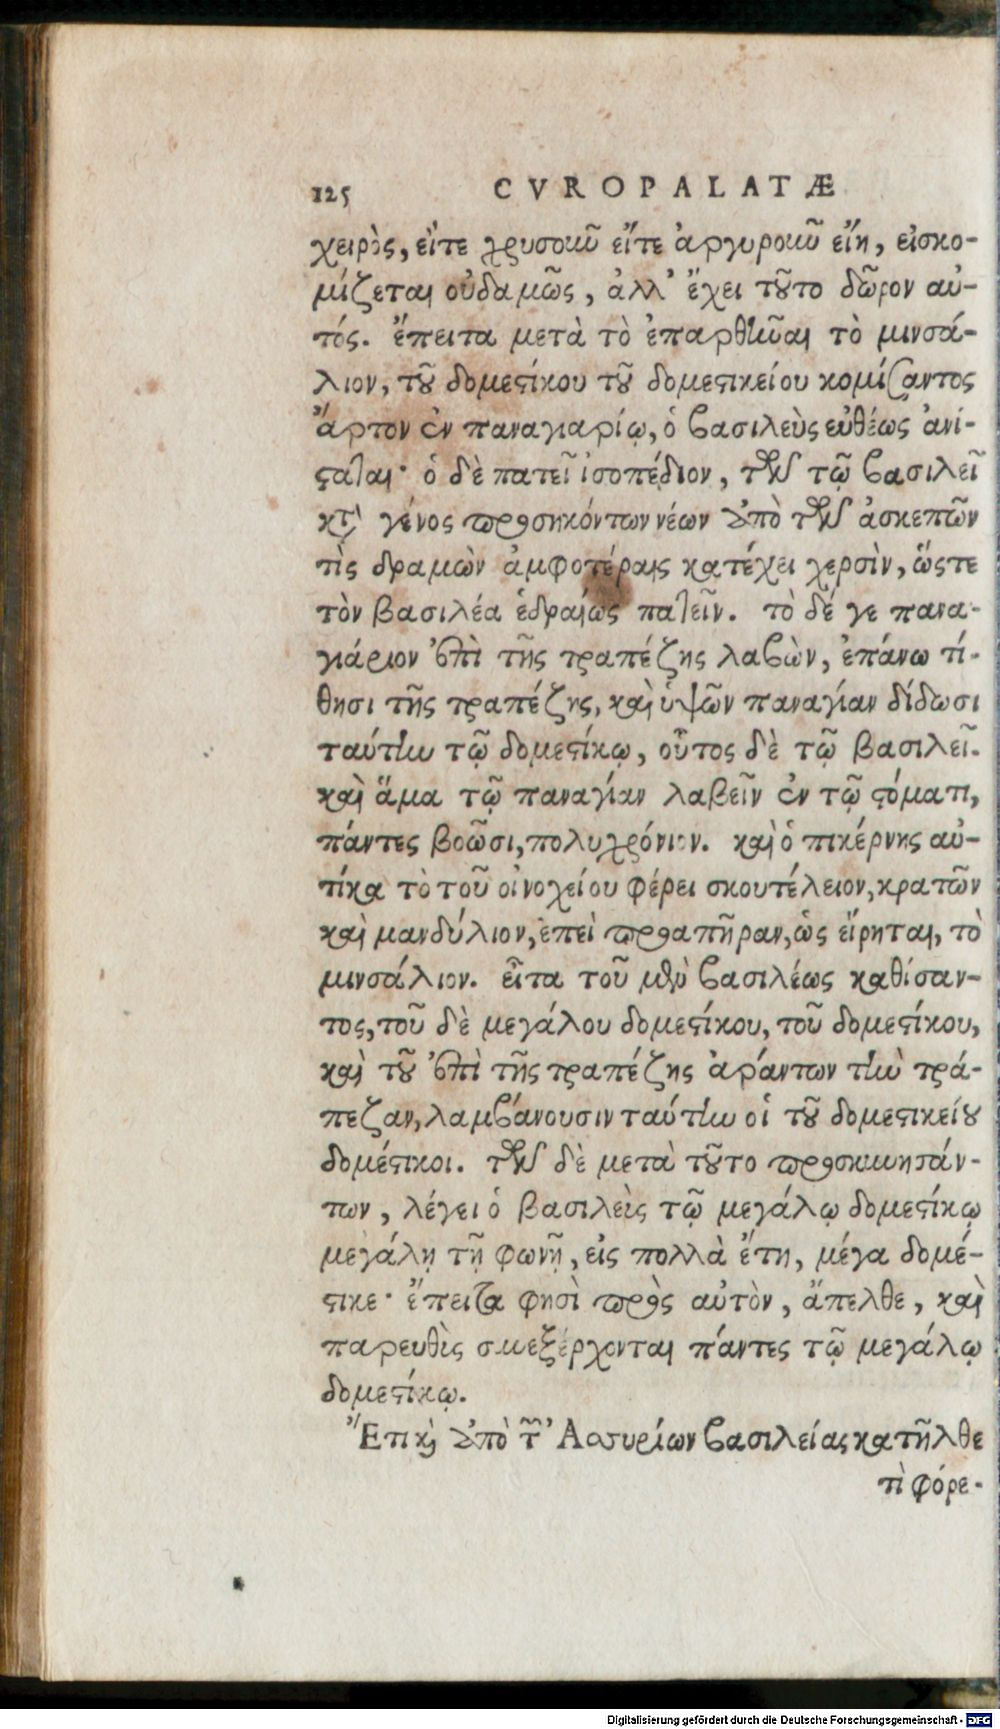 125 CVROPALATÆ
χειρὸς, εἴτε χρυσοιοῦν εἴτε ἀργυροιοῦν εἴη, εἰσκο-
μίζεται οὐδαμῶς, ἀλλ' ἔχει τοῦτο δῶρον αὐ-
τός. ἔπειτα μετὰ τὸ ἐπαρθῆναι τὸ μινσά-
λιον, τοῦ δομεστίκου τοῦ δομεστικείου κομίσαντος
ἄρτον ἐν παναγιαρίῳ, ὁ βασιλεὺς εὐθέως ἀνί-
σταται· ὁ δὲ πατεῖ ἰσοπέδιον, τῶν τῷ βασιλεῖ
κατὰ γένος προσηκόντων νέων ἀπὸ τῶν ἀσκεπῶν
τὶς δραμὼν ἀμφοτέραις κατέχει χερσὶν, ὥστε
τὸν βασιλέα ἑδραίως πατεῖν. τὸ δέ γε πανα-
γιάριον ἐπὶ τῆς τραπέζης λαβὼν, ἐπάνω τί-
θησι τῆς τραπέζης, καὶ ὑψῶν παναγίαν δίδωσι
ταύτην τῷ δομεστίκῳ, οὗτος δὲ τῷ βασιλεῖ.
καὶ ἅμα τῷ παναγίαν λαβεῖν ἐν τῷ στόματι,
πάντες βοῶσι, πολυχρόνιον. καὶ ὁ πικέρνης αὐ-
τίκα τὸ τοῦ οἰνοχείου φέρει σκουτέλειον, κρατῶν
καὶ μανδύλιον, ἐπεὶ προαπῆραν, ὡς εἴρηται, τὸ
μινσάλιον. εἶτα τοῦ μὲν βασιλέως καθίσαν-
τος, τοῦ δὲ μεγάλου δομεστίκου, τοῦ δομεστίκου,
καὶ τοῦ ἐπὶ τῆς τραπέζης ἀράντων τὴν τρά-
πεζαν, λαμβάνουσιν ταύτην οἱ τοῦ δομεστικείου
δομέστικοι. τῶν δὲ μετὰ τοῦτο προσκυνησάν-
των, λέγει ὁ βασιλεὺς τῷ μεγάλῳ δομεστίκῳ
μεγάλῃ τῇ φωνῇ, εἰς πολλὰ ἔτη, μέγα δομέ-
στικε· ἔπειτα φησὶ πρὸς αὐτὸν, ἄπελθε, καὶ
παρευθὺς συνεξέρχονται πάντες τῷ μεγάλῳ
δομεστίκῳ.
Ἔτι καὶ ἀπὸ τῆς Ἀσσυρίων βασιλείας κατῆλθε
τὶ φόρε-
Digitalisierung gefördert durch die Deutsche Forschungsgemeinschaft - DFG